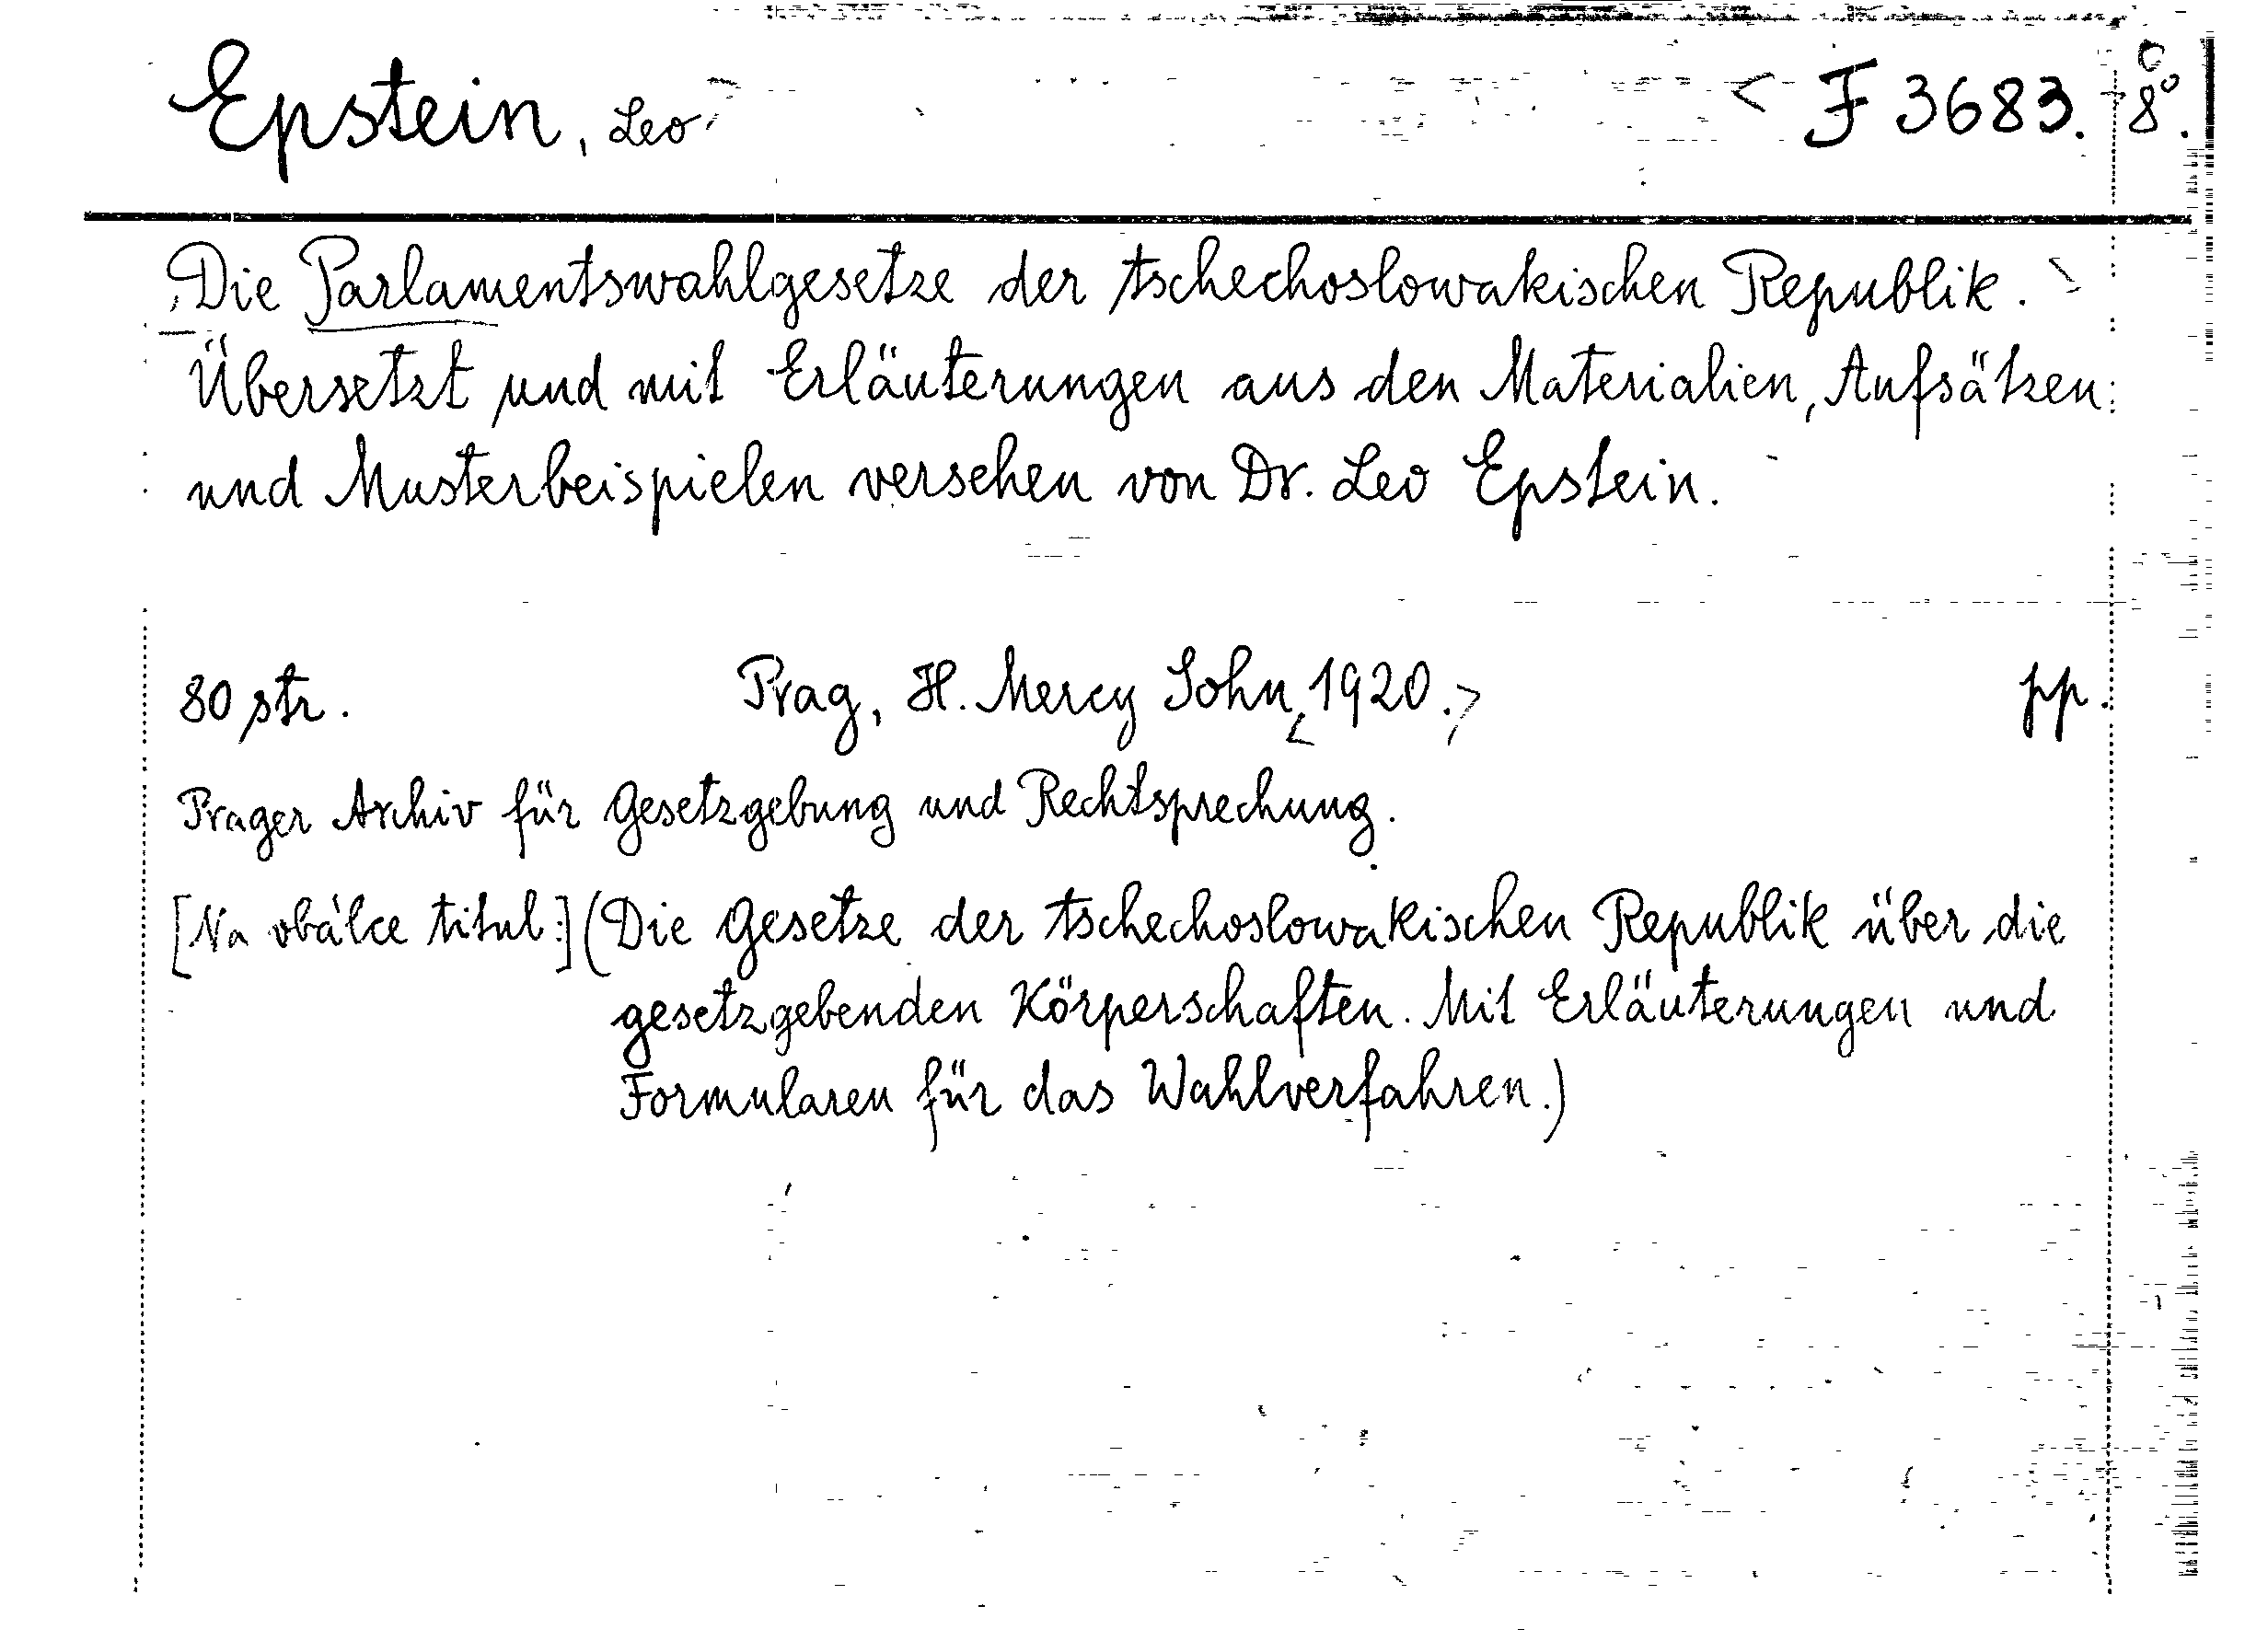 Epstein, Leo F 3683. 8°.
Die Parlamentswahlgesetze der tschechoslowakischen Republik.
Übersetzt und mit Erläuterungen aus den Materialien, Aufsätzen
und Musterbeispielen versehen von Dr. Leo Epstein.
80 str. Prag, H. Mercy Sohn, 1920. pp.
Prager Archiv für Gesetzgebung und Rechtsprechung.
[Na obálce titul:] (Die Gesetze der tschechoslowakischen Republik über die
gesetzgebenden Körperschaften. Mit Erläuterungen und
Formularen für das Wahlverfahren.)